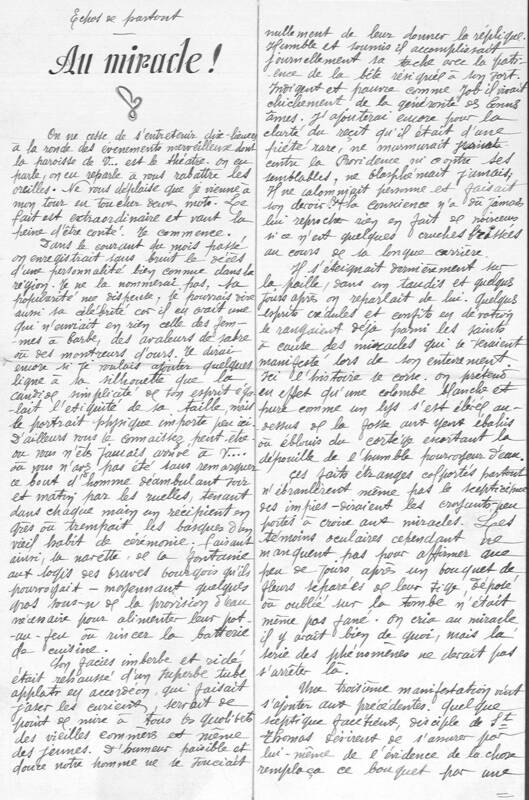 Échos de partout
Au miracle !
On ne cesse de s'entretenir dix lieues
à la ronde des évènements merveilleux dont
la paroisse de V... est le théâtre. on en
parle, on en reparle à vous rabattre les
oreilles. Ne vous déplaise que je vienne à
mon tour en toucher deux mots. Le
fait est extraordinaire et vaut la
peine d'être conté. Je commence.
Dans le courant du mois passé
on enregistrait sans bruit le décès
d'une personnalité bien connue dans la
région. Je ne la nommerai pas, sa
popularité me dispense, je pourrais dire
aussi sa célébrité car il en avait une
qui n'enviait en rien celle des fem-
mes à barbe, des avaleurs de sabre
ou des montreurs d'ours. Je dirai
encore si je voulais ajouter quelques
ligne à la silhouette que la
candide simplicité de son esprit éga-
lait l'exiguité de sa taille, mais
le portrait physique importe peu ici
D'ailleurs vous le connaissez peut être
ou vous n'êtes jamais arrivé à V....
où vous n'avez pas été sans remarquer
ce bout d'homme déambulant soir
et matin par les ruelles, tenant
dans chaque main un récipient en
grès où trempait les basques d'un
vieil habit de cérémonie. Faisant
ainsi, la navette, de la fontaine
aux logis des braves bourgeois qu'ils
pourvoyait - moyennant quelques
gros sous - de la provision d'eau
nécessaire pour alimenter leur pot-
au-feu ou rincer la batterie
de cuisine.
Son faciès imberbe et ridé
était rehaussé d'un superbe tube
applati en accordéon, qui faisait
jaser les curieux, servait de
point de mire à tous les quolibets
des vieilles commères et même
des jeunes. D'humeur paisible et
douce notre homme ne se souciait
nullement de leur donner la réplique.
Humble et soumis il accomplissait
journellement sa tache avec la pati-
ence de la bête résignée à son sort.
Indigent et pauvre comme Job il vivait
chichement de la générosité de bonnes
âmes. J'ajouterai encore pour la
clarté du récit qu'il était d'une
piété rare, ne murmurait jamais
contre la Providence ni contre ses
semblables, ne blasphémait jamais,
Il ne calomniait personne et faisait
son devoir. Sa conscience n'a dû jamais
lui reprocher rien en fait de noirceurs
si ce n'est quelques cruches cassées
au cours de sa longue carrière.
Il s'éteignait dernièrement sur
la paille, dans un taudis et quelques
jours après on reparlait de lui. Quelques
esprits crédules et confits en dévotion
le rangeaient déjà parmi les saints
à cause des miracles qui se seraient
manifesté lors de son enterrement.
Ici l'histoire se corse. On prétend
en effet qu'une colombe blanche et
pure comme un lys s'est élevée au-
dessus de la fosse aux yeux ébahis
ou éblouis du cortège escortant la
dépouille de l'humble pourvoyeur d'eau.
Ces faits étranges colportés partout
n'ébranlèrent même pas le scepticisme
des impies - diraient les croyants - peu
portés à croire aux miracles. Les
témoins oculaires cependant ne
manquent pas pour affirmer que
peu de jours après un bouquet de
fleurs séparées de leur tige, déposé
ou oublié sur la tombe n'était
même pas fané. On cria au miracle
il y avait bien de quoi, mais la
série des phénomènes ne devait pas
s'arrêter là.
Une troisième manifestation vint
s'ajouter aux précédentes. Quelque
sceptique facétieux, disciple de St
Thomas désireux de s'assurer par
lui-même de l'évidence de la chose
remplaça ce bouquet par une